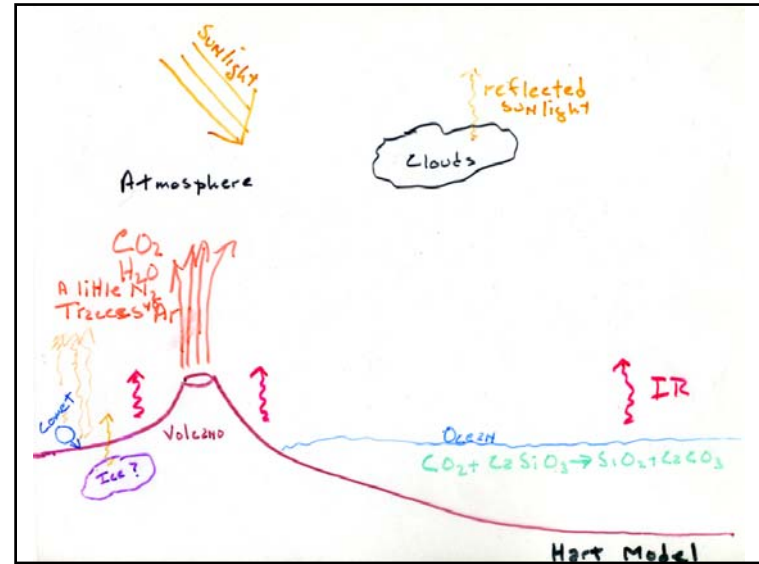 Sunlight
reflected
sunlight
Clouds
Atmosphere
CO₂
H₂O
A little N₂
Traces ⁴⁰Ar
Comet
Ice?
Volcano
IR
Ocean
CO₂ + CaSiO₃ → SiO₂ + CaCO₃
Hart Model